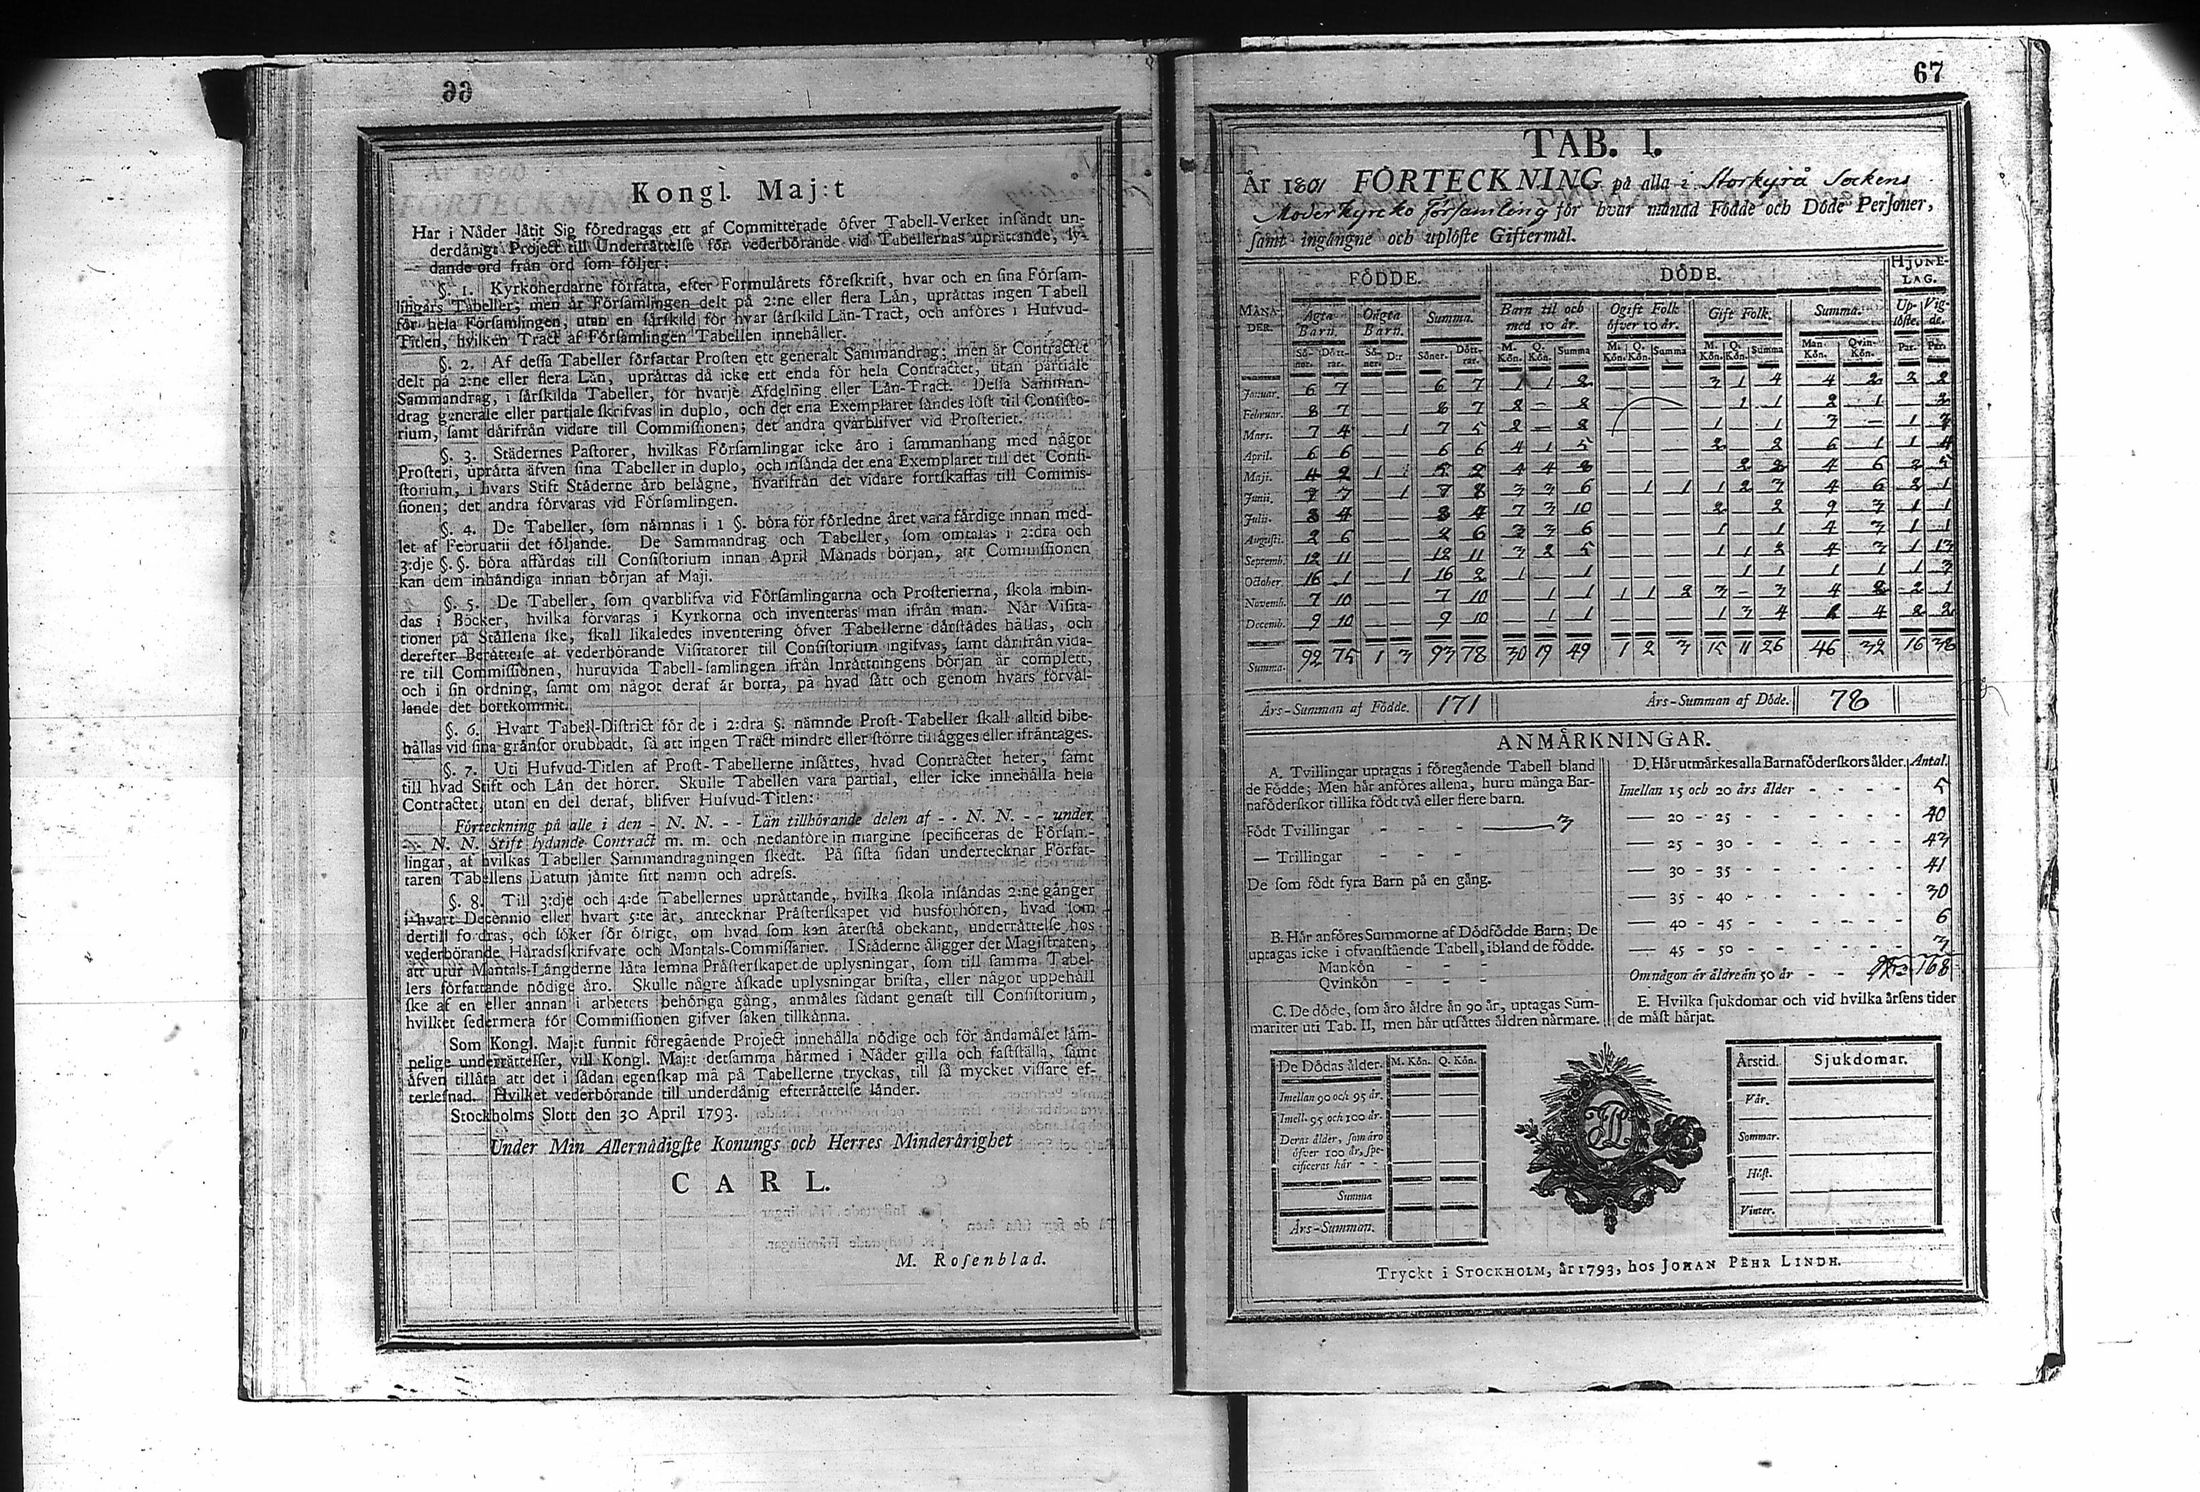 66
Kongl. Maj:t
Har i Nåder låtit Sig föredragas ett af Committerade öfver Tabell-Verket insändt un-
derdånigt Project till Underrättelse för vederbörande vid Tabellernas uprättande, ly-
dande ord från ord som följer:
§. 1. Kyrkoherdarne författa, efter Formulärets föreskrift, hvar och en sina Försam-
lingars Tabeller; men är Församlingen delt på 2:ne eller flera Län, uprättas ingen Tabell
för hela Församlingen, utan en särskild för hvar särskild Län-Tract, och anföres i Hufvud-
Titlen, hvilken Tract af Församlingen Tabellen innehåller.
§. 2. Af dessa Tabeller författar Prosten ett generalt Sammandrag; men är Contractet
delt på 2:ne eller flera Län, uprättas då icke ett enda för hela Contractet, utan partiale
Sammandrag, i särskilda Tabeller, för hvarje Afdelning eller Län-Tract. Dessa Samman-
drag generale eller partiale skrifvas in duplo, och det ena Exemplaret sändes löst til Consisto-
rium, samt därifrån vidare till Commissionen; det andra qvarblifver vid Prosteriet.
§. 3. Städernes Pastorer, hvilkas Församlingar icke äro i sammanhang med något
Prosteri, uprätta äfven sina Tabeller in duplo, och insända det ena Exemplaret till det Consi-
storium, i hvars Stift Städerne äro belägne, hvarifrån det vidare fortskaffas till Commis-
sionen; det andra förvaras vid Församlingen.
§. 4. De Tabeller, som nämnas i 1 §. böra för förledne året vara färdige innan med-
let af Februarii det följande. De Sammandrag och Tabeller, som omtalas i 2:dra och
3:dje §. §. böra affärdas till Consistorium innan April Månads början, att Commissionen
kan dem inhändiga innan början af Maji.
§. 5. De Tabeller, som qvarblifva vid Församlingarna och Prosterierna, skola inbin-
das i Böcker, hvilka förvaras i Kyrkorna och inventeras man ifrån man. När Visita-
tioner på Ställena ske, skall likaledes inventering öfver Tabellerne därstädes hållas, och
derefter Berättelse af vederbörande Visitatorer till Consistorium ingifvas, samt därifrån vida-
re till Commissionen, huruvida Tabell-samlingen ifrån Inrättningens början är complett,
och i sin ordning, samt om något deraf är borta, på hvad sätt och genom hvars förvål-
lande det bortkommit.
§. 6. Hvart Tabell-District för de i 2:dra §. nämnde Prost-Tabeller skall alltid bibe-
hållas vid sina gränsor orubbadt, så att ingen Tract mindre eller större tillägges eller ifråntages.
§. 7. Uti Hufvud-Titlen af Prost-Tabellerne insättes, hvad Contractet heter, samt
till hvad Stift och Län det hörer. Skulle Tabellen vara partial, eller icke innehålla hela
Contractet, utan en del deraf, blifver Hufvud-Titlen:
Förteckning på alle i den - N. N. - - Län tillhörande delen af - - N. N. - - under
- N. N. Stift lydande Contract m. m. och nedanföre in margine specificeras de Försam-
lingar, af hvilkas Tabeller Sammandragningen skedt. På sista sidan undertecknar Förfat-
taren Tabellens Datum jämte sitt namn och adress.
§. 8. Till 3:dje och 4:de Tabellernes uprättande, hvilka skola insändas 2:ne gånger
i hvart Decennio eller hvart 5:te år, antecknar Prästerskapet vid husförhören, hvad som
dertill fordras, och söker för öfrigt, om hvad som kan återstå obekant, underrättelse hos
vederbörande Häradsskrifvare och Mantals-Commissarier. I Städerne åligger det Magistraten,
att utur Mantals-Längderne låta lemna Prästerskapet de uplysningar, som till samma Tabel-
lers författande nödige äro. Skulle någre åskade uplysningar brista, eller något uppehåll
ske af en eller annan i arbetets behöriga gång, anmäles sådant genast till Consistorium,
hvilket sedermera för Commissionen gifver saken tillkänna.
Som Kongl. Maj:t funnit föregående Project innehålla nödige och för ändamålet läm-
pelige underrättelser, vill Kongl. Maj:t detsamma härmed i Nåder gilla och fastställa, samt
äfven tillåta att det i sådan egenskap må på Tabellerne tryckas, till så mycket vissare ef-
terlefnad. Hvilket vederbörande till underdånig efterrättelse länder.
Stockholms Slott den 30 April 1793.
Under Min Allernådigste Konungs och Herres Minderårighet
CARL.
M. Rosenblad.
67
TAB. I.
År 1801 FÖRTECKNING på alla i Storkyrå Sockens
Moderkyrcko församling för hvar månad Födde och Döde Personer,
samt ingångne och uplöste Giftermål.
FÖDDE. DÖDE. HJONE-
LAG.
MÅNA-
DER. Ägta
Barn. Oägta
Barn. Summa. Barn til och
med 10 år. Ogift Folk
öfver 10 år. Gift Folk. Summa. Up-
löste. Vig-
de.
Sö-
ner. Dött-
rar. Sö-
ner. D:r Söner. Dött-
rar. M.
Kön. Q.
Kön. Summa M.
Kön. Q.
Kön. Summa M.
Kön. Q.
Kön. Summa Man
Kön. Qvin-
Kön. Par. Par.
Januar. 6 7 — — 6 7 1 1 2 — — — 3 1 4 4 2 2 2
Februar. 8 7 — — 8 7 2 — 2 1 1 2 1
Mars. 7 4 — 1 7 5 2 — 2 1 1 3 — 1 3
April. 6 6 — — 6 6 4 1 5 — — — 2 — 2 6 1 1 4
Maji. 4 2 1 5 2 4 4 8 — — — 2 2 4 6 2 5
Junii. 7 7 — 1 7 8 3 3 6 — 1 1 1 2 3 4 6 2 1
Julii. 8 4 — — 8 4 7 3 10 — — — 2 — 2 9 3 1 1
Augusti. 2 6 — — 2 6 3 3 6 — — — 1 — 1 4 3 1 1
Septemb. 12 11 — — 12 11 3 2 5 — — — 1 1 2 4 3 1 13
October. 16 1 — 1 16 2 1 — 1 — — — — 1 1 1 1 1 3
Novemb. 7 10 — — 7 10 — 1 1 1 1 2 3 — 3 4 2 2 1
Decemb. 9 10 — — 9 10 — 1 1 — — — 1 3 4 4 2 2
Summa. 92 75 1 3 93 78 30 19 49 1 2 3 15 11 26 46 32 16 38
Års-Summan af Födde. 171 Års-Summan af Döde. 78
ANMÄRKNINGAR.
A. Tvillingar uptagas i föregående Tabell bland
de Födde; Men här anföres allena, huru många Bar-
naföderskor tillika födt två eller flere barn.
Födt Tvillingar - - - 3
— Trillingar - - -
De som födt fyra Barn på en gång.
B. Här anföres Summorne af Dödfödde Barn; De
uptagas icke i ofvanstående Tabell, ibland de födde.
Mankön - - -
Qvinkön - - -
C. De döde, som äro äldre än 90 år, uptagas Sum-
mariter uti Tab. II, men här utsättes åldren närmare.
D. Här utmärkes alla Barnaföderskors ålder. Antal.
Imellan 15 och 20 års ålder - - - - 5
— 20 - 25 - - - - - - 40
— 25 - 30 - - - - - - 43
— 30 - 35 - - - - - - 41
— 35 - 40 - - - - - - 30
— 40 - 45 - - - - - - 6
— 45 - 50 - - - - - - 3
Om någon är äldre än 50 år - - 168
E. Hvilka sjukdomar och vid hvilka årsens tider
de mäst härjat.
De Dödas ålder. M. Kön. Q. Kön.
Imellan 90 och 95 år.
Imell. 95 och 100 år.
Deras ålder, som äro
öfver 100 år, spe-
cificeras här - -
Summa
Års-Summan.
Årstid. Sjukdomar.
Vår.
Sommar.
Höst.
Vinter.
Tryckt i STOCKHOLM, år 1793, hos JOHAN PEHR LINDH.